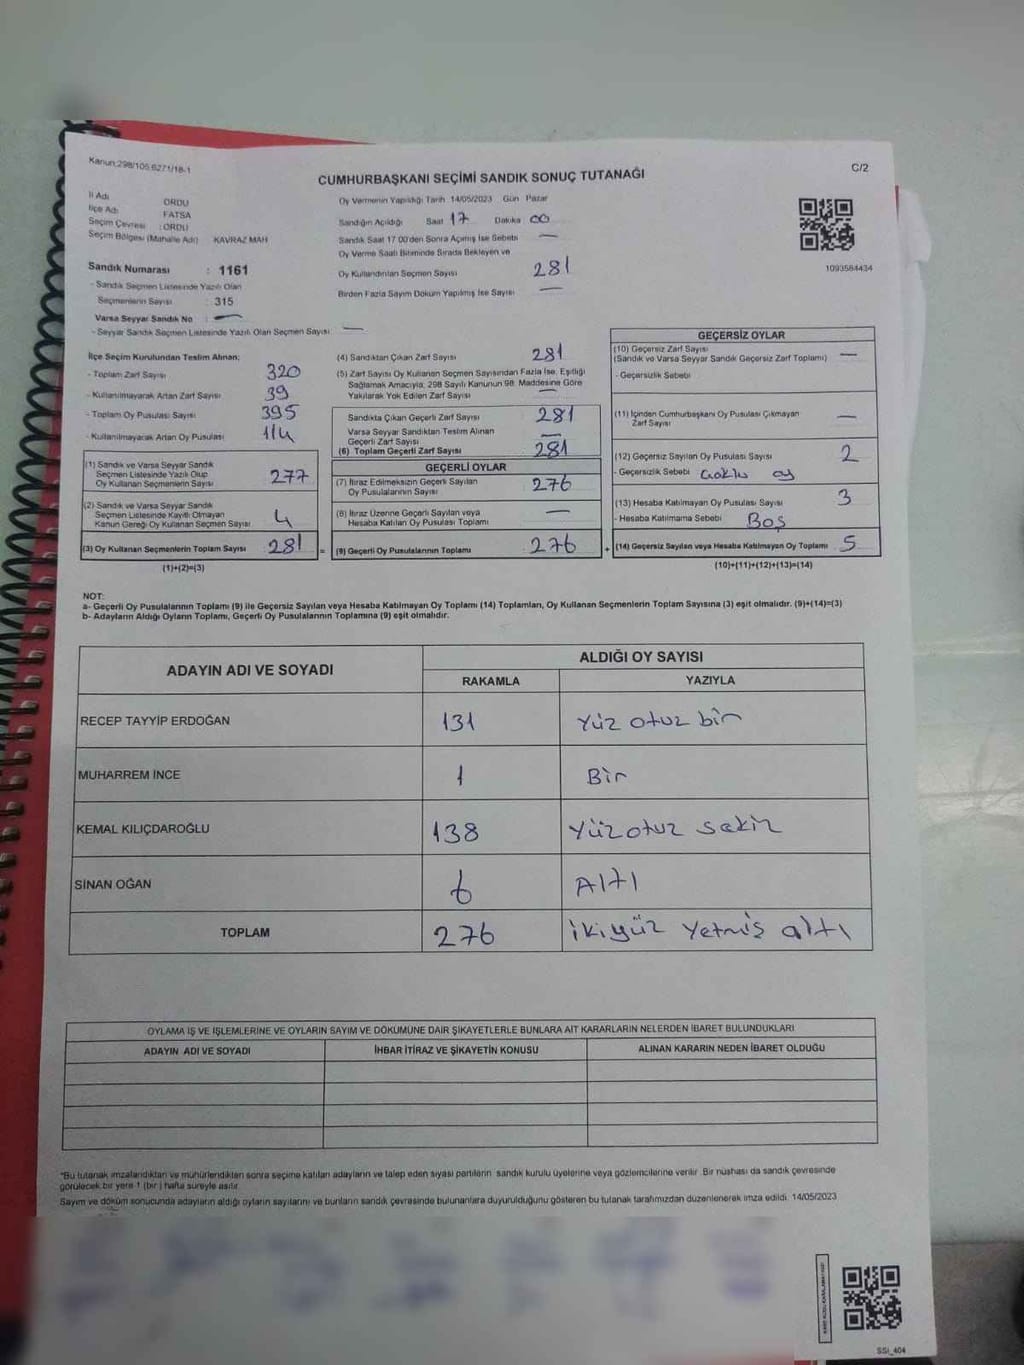 Kanun:298/105,6271/18-1
C/2
CUMHURBAŞKANI SEÇİMİ SANDIK SONUÇ TUTANAĞI
İl Adı ORDU
İlçe Adı FATSA
Seçim Çevresi : ORDU
Seçim Bölgesi (Mahalle Adı) KAVRAZ MAH
Sandık Numarası : 1161
- Sandık Seçmen Listesinde Yazılı Olan
Seçmenlerin Sayısı : 315
Varsa Seyyar Sandık No : —
- Seyyar Sandık Seçmen Listesinde Yazılı Olan Seçmen Sayısı —
Oy Vermenin Yapıldığı Tarih 14/05/2023 Gün Pazar
Sandığın Açıldığı Saat 17 Dakika 00
Sandık Saat 17 00'den Sonra Açılmış İse Sebebi —
Oy Verme Saati Bitiminde Sırada Bekleyen ve
Oy Kullandırılan Seçmen Sayısı 281
Birden Fazla Sayım Döküm Yapılmış İse Sayısı —
1093584434
İlçe Seçim Kurulundan Teslim Alınan;
- Toplam Zarf Sayısı 320
- Kullanılmayarak Artan Zarf Sayısı 39
- Toplam Oy Pusulası Sayısı 395
- Kullanılmayarak Artan Oy Pusulası 114
(1) Sandık ve Varsa Seyyar Sandık
Seçmen Listesinde Yazılı Olup
Oy Kullanan Seçmenlerin Sayısı 277
(2) Sandık ve Varsa Seyyar Sandık
Seçmen Listesinde Kayıtlı Olmayan
Kanun Gereği Oy Kullanan Seçmen Sayısı 4
(3) Oy Kullanan Seçmenlerin Toplam Sayısı 281 =
(1)+(2)=(3)
(4) Sandıktan Çıkan Zarf Sayısı 281
(5) Zarf Sayısı Oy Kullanan Seçmen Sayısından Fazla İse, Eşitliği
Sağlamak Amacıyla; 298 Sayılı Kanunun 98. Maddesine Göre
Yakılarak Yok Edilen Zarf Sayısı —
Sandıkta Çıkan Geçerli Zarf Sayısı 281
Varsa Seyyar Sandıktan Teslim Alınan
Geçerli Zarf Sayısı —
(6) Toplam Geçerli Zarf Sayısı 281
GEÇERLİ OYLAR
(7) İtiraz Edilmeksizin Geçerli Sayılan
Oy Pusulalarının Sayısı 276
(8) İtiraz Üzerine Geçerli Sayılan veya
Hesaba Katılan Oy Pusulası Toplamı —
(9) Geçerli Oy Pusulalarının Toplamı 276 +
GEÇERSİZ OYLAR
(10) Geçersiz Zarf Sayısı
(Sandık ve Varsa Seyyar Sandık Geçersiz Zarf Toplamı) —
- Geçersizlik Sebebi
(11) İçinden Cumhurbaşkanı Oy Pusulası Çıkmayan
Zarf Sayısı —
(12) Geçersiz Sayılan Oy Pusulası Sayısı 2
- Geçersizlik Sebebi Çoklu oy
(13) Hesaba Katılmayan Oy Pusulası Sayısı 3
- Hesaba Katılmama Sebebi Boş
(14) Geçersiz Sayılan veya Hesaba Katılmayan Oy Toplamı 5
(10)+(11)+(12)+(13)=(14)
NOT:
a- Geçerli Oy Pusulalarının Toplamı (9) ile Geçersiz Sayılan veya Hesaba Katılmayan Oy Toplamı (14) Toplamları, Oy Kullanan Seçmenlerin Toplam Sayısına (3) eşit olmalıdır. (9)+(14)=(3)
b- Adayların Aldığı Oyların Toplamı, Geçerli Oy Pusulalarının Toplamına (9) eşit olmalıdır.
ADAYIN ADI VE SOYADI
ALDIĞI OY SAYISI
RAKAMLA YAZIYLA
RECEP TAYYİP ERDOĞAN 131 Yüz otuz bir
MUHARREM İNCE 1 Bir
KEMAL KILIÇDAROĞLU 138 Yüzotuz sekiz
SİNAN OĞAN 6 Altı
TOPLAM 276 ikiyüz Yetmiş altı
OYLAMA İŞ VE İŞLEMLERİNE VE OYLARIN SAYIM VE DÖKÜMÜNE DAİR ŞİKAYETLERLE BUNLARA AİT KARARLARIN NELERDEN İBARET BULUNDUKLARI
ADAYIN ADI VE SOYADI İHBAR İTİRAZ VE ŞİKAYETİN KONUSU ALINAN KARARIN NEDEN İBARET OLDUĞU
*Bu tutanak imzalandıktan ve mühürlendikten sonra seçime katılan adayların ve talep eden siyasi partilerin sandık kurulu üyelerine veya gözlemcilerine verilir. Bir nüshası da sandık çevresinde
görülecek bir yere 1 (bir ) hafta süreyle asılır
Sayım ve döküm sonucunda adayların aldığı oyların sayılarını ve bunların sandık çevresinde bulunanlara duyurulduğunu gösteren bu tutanak tarafımızdan düzenlenerek imza edildi. 14/05/2023
SSI_404